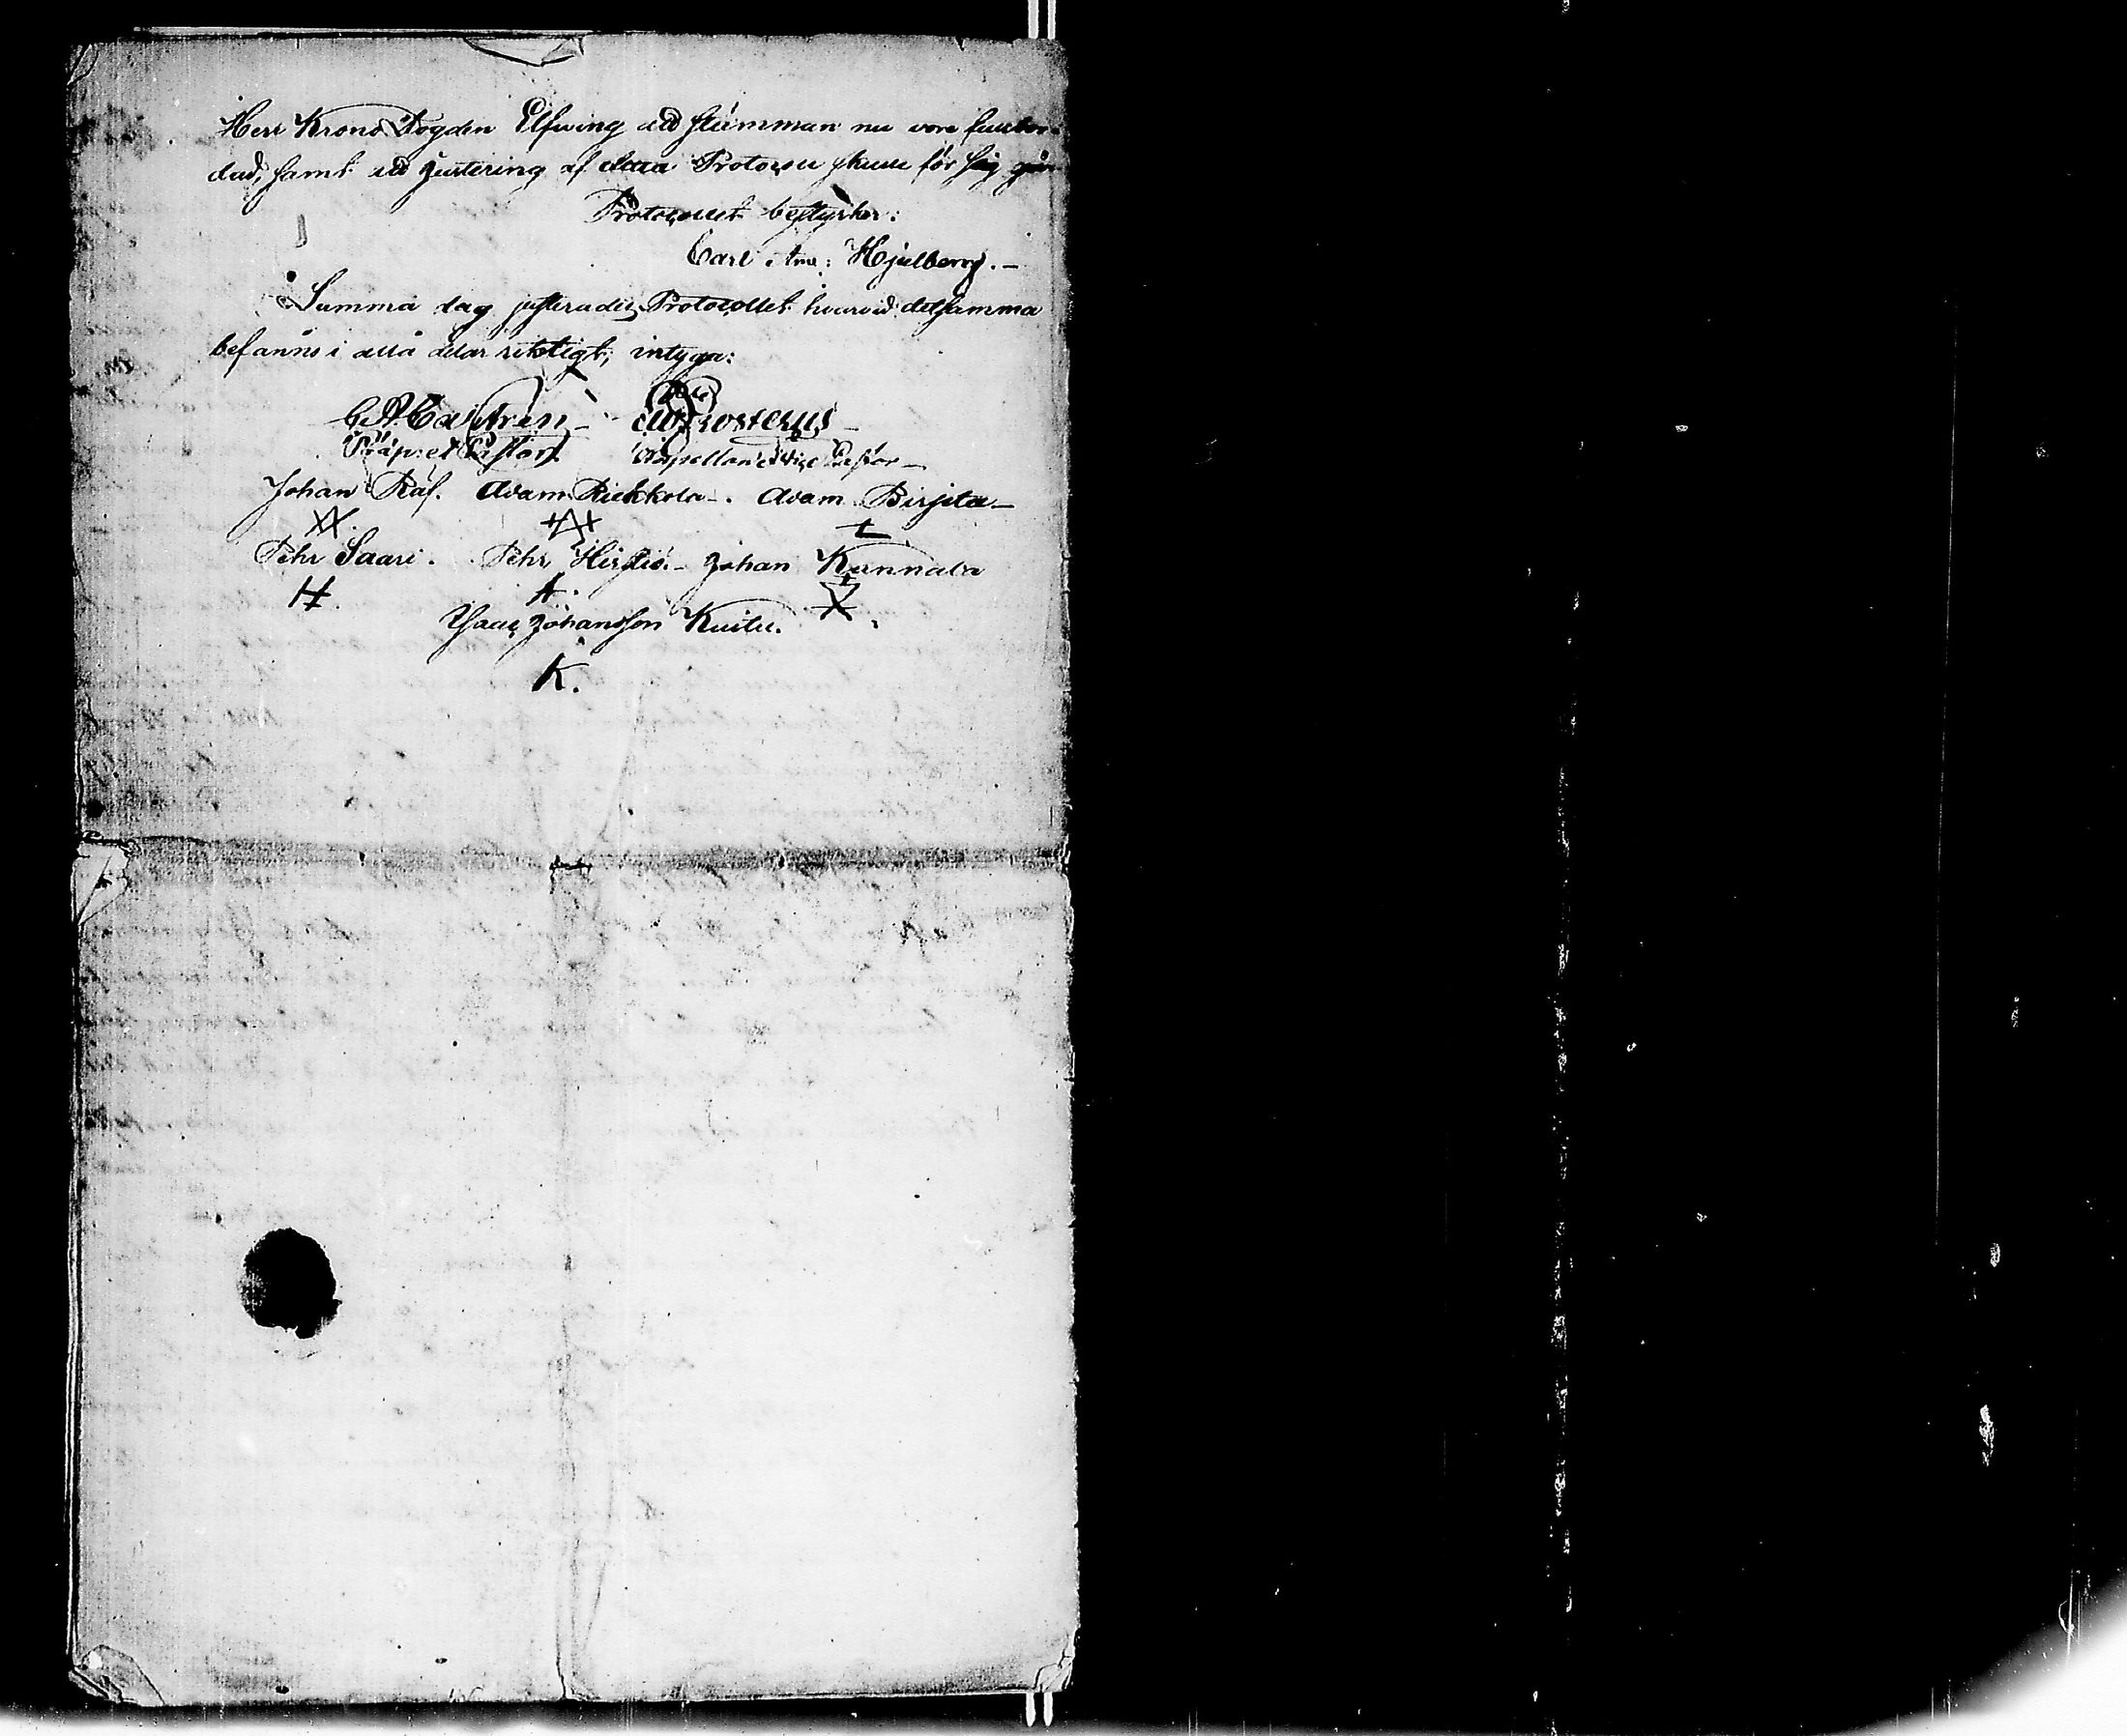 Herr Krono Fogden Elfving att stämman nu vore fullbor-
dad, samt att justering af detta Protocoll skulle för sig gå.
Protocollet bestyrker:
Carl And: Hjulberg. —
Samma dag justerades Protocollet hvarvid detsamma
befanns i alla delar riktigt, intyga:
C A Castrén —
Præp: et Pastor. Capellan et Vice Pastor —
Johan Räf. Adam Riekkola —. Adam Birjita —
Pehr Saari. Pehr Hirsiö. — Johan Kunnala
H. A.
Isaac Johansson Kuitu.
K.